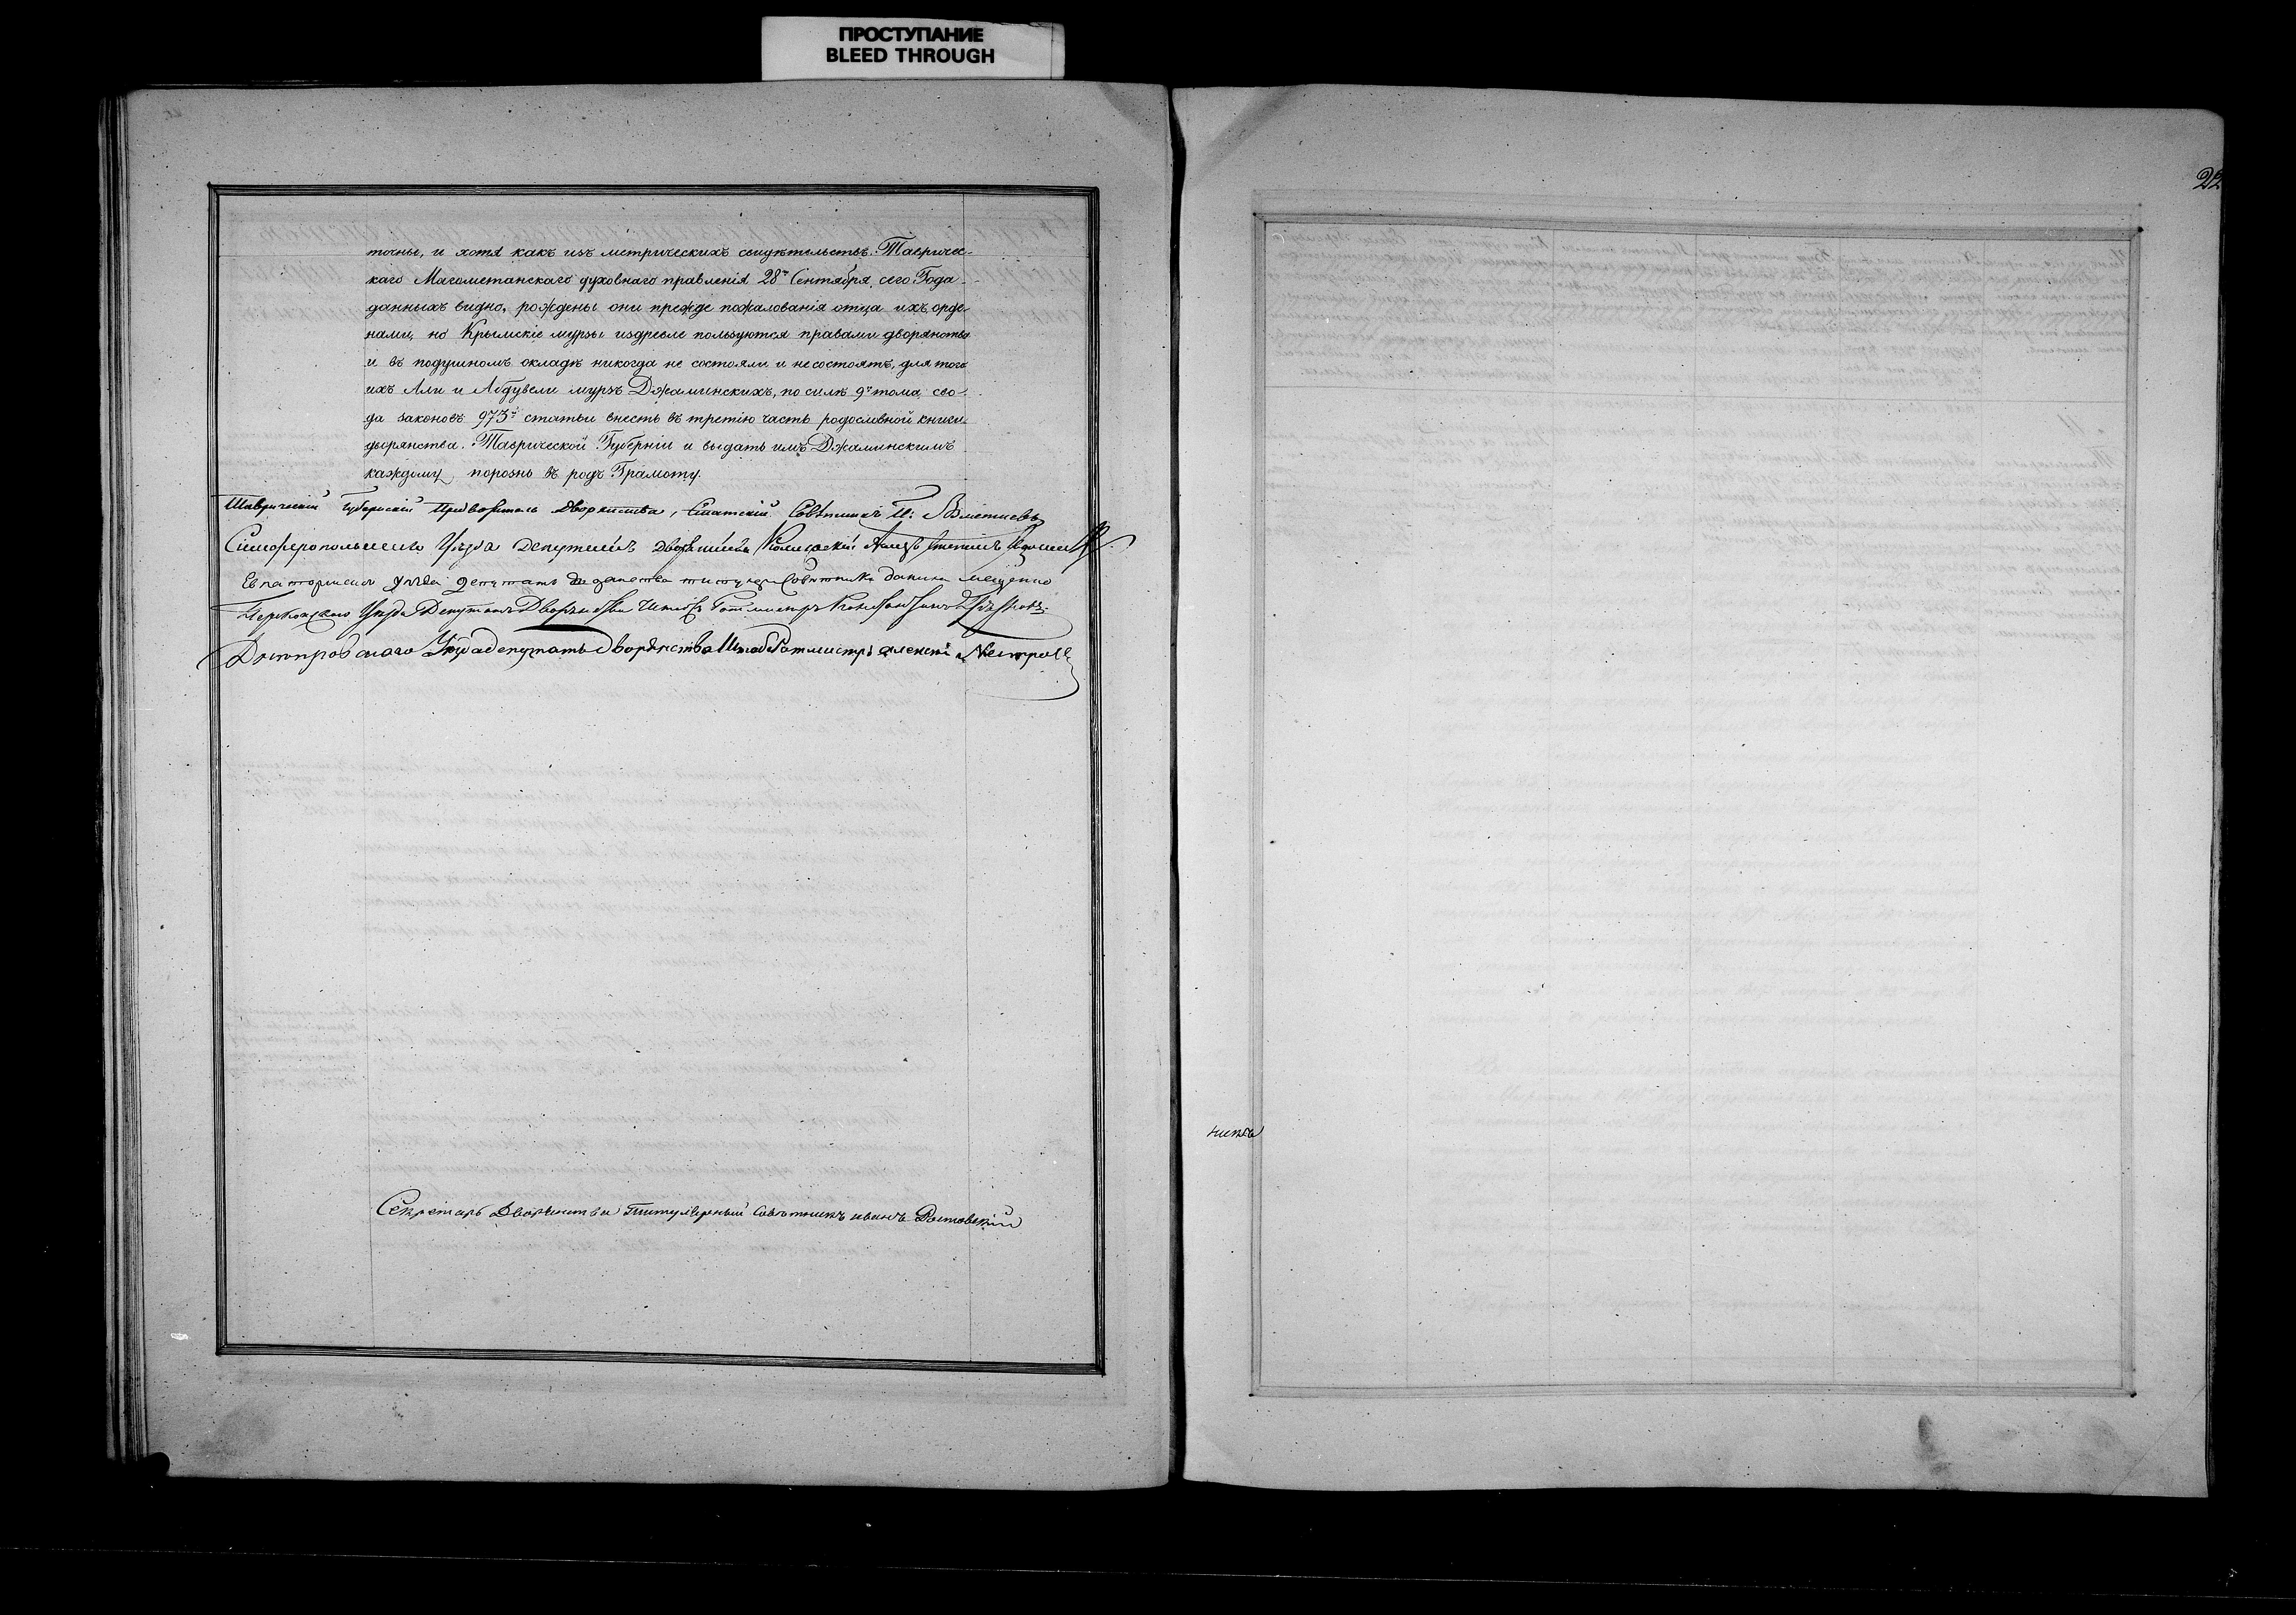 ПРОСТУПАНИЕ
BLEED THROUGH
22
точны, и хотя какъ изъ метрическихъ свидѣтельствъ Тавричес-
каго Магометанскаго духовнаго правленія 28го Сентября сего Года
данныхъ видно, рождены они прежде пожалованія отца ихъ орде-
нами, но Крымскіе мурзы издревле пользуются правами дворянства
и въ подушномъ окладѣ никогда не состояли и несостоятъ, для того
ихъ Али и Абдувели мурзъ Джаминскихъ, по силѣ 9го тома сво-
да законовъ 973й статьи внесть въ третію часть родословной книги
дворянства Таврической Губерніи и выдать имъ Джаминскимъ
каждому порознь въ родъ Грамоту.
Таврическій Губернскій Предводитель Дворянства, Статскій Совѣтникъ
Симферопольскаго Уѣзда Депутатъ Дворянства
Евпаторійскаго уѣзда депутатъ
Перекопскаго Уѣзда Депутатъ Дворянства Штабсъ Ротмистръ
Днепровскаго Уѣзда депутатъ Дворянства Штабсъ Ротмистръ алексѣй
Секретарь Дворянства Титулярный Совѣтникъ иванъ Ростовскій